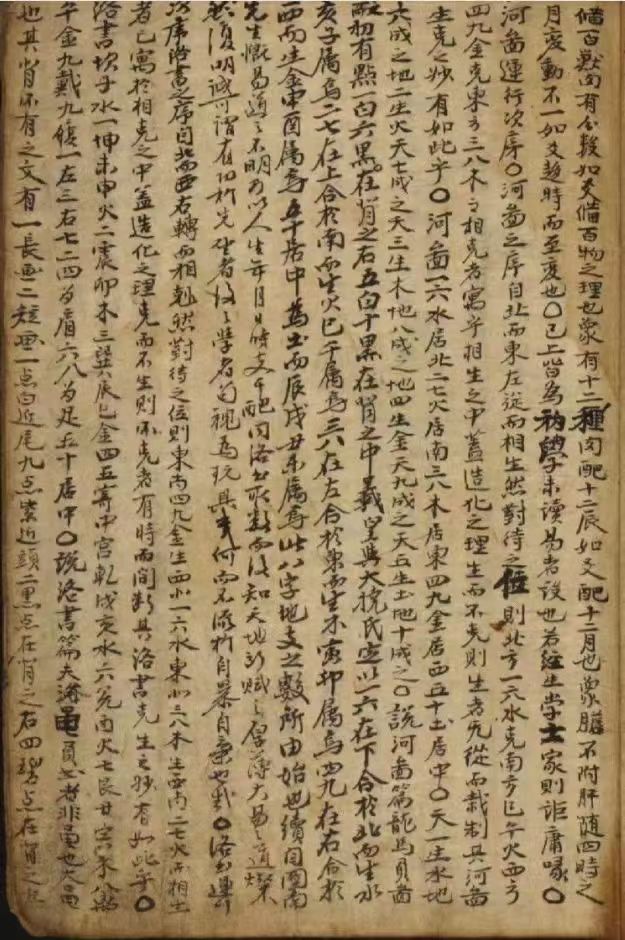 備百獸肉有分數如爻備百物之理也象有十二種肉配十二辰如爻配十二月也象膽不附肝隨四時之
月變動不一如爻趨時而至变也〇已上皆為初學未讀易者設也若經生学士家則詎庸喙〇
河啚運行次序〇河啚之序自北而東左旋而相生然對待之位則北方一六水克南方巳午火西方
四九金克東方三八木而相克者寓乎相生之中蓋造化之理生而不克則生者无從而裁制其河啚
生克之妙有如此乎〇河啚一六水居北二七火居南三八木居東四九金居西五十土居中〇天一生水地
六成之地二生火天七成之天三生木地八成之地四生金天九成之天五生土地十成之〇說河啚篇龍馬負啚
初有點一白六黑在背之右五白十黑在背之中羲皇與大撓氏定以一六在下合於北而生水
亥子属焉二七在上合於南而生火巳午属焉三八在左合於東而生木寅卯属焉四九在右合於
西而生金申酉属焉五十居中為土而辰戌丑未属焉此八字地支之數所由始也
先生慨易道之不明而以人生年月日時支干配河洛而後知天地所賦之厚薄大易之道燦
然復明誠可謂有功於先生者後之學者苟視為玩具何而不流於自暴自棄也哉〇洛書
洛書之序自北而西右轉而相剋然對待之位則東南四九金生西北一六水東北三八木生西南二七火而相生
者已寓於相克之中蓋造化之理克而不生則所克者有時而間斷其洛書克生之妙有如此乎〇
洛書坎子水一坤未申火二震卯木三巽辰巳金四五寄中宮乾戌亥水六兌酉火七艮丑寅木八離
午金九戴九履一左三右七二四为肩六八为足五十居中〇說洛書篇夫洛黽負書者非黽也大黽
也其背所有之文有一長画二短画一点白近尾九点紫近頭二黑点在背之右四碧点在背之左